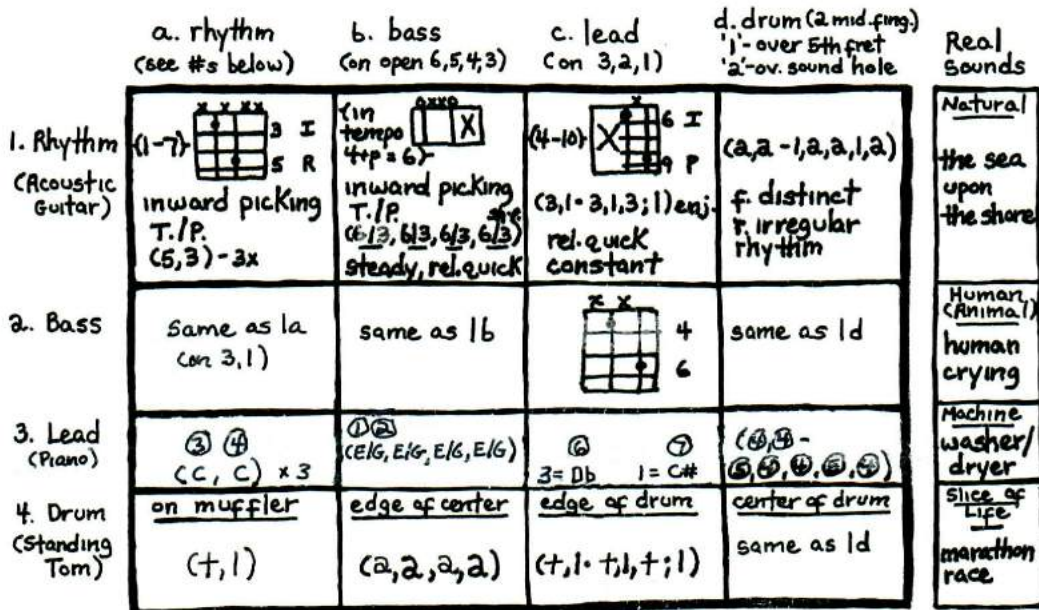 a. rhythm
(see #s below)
b. bass
(on open 6,5,4,3)
c. lead
(on 3,2,1)
d. drum (2 mid. fing.)
'1'- over 5th fret
'2'-ov. sound hole
Real
Sounds
1. Rhythm
(Acoustic
Guitar)
{1-7}
x x xx
3 I
5 R
inward picking
T./P.
(5,3) - 3x
{in
tempo
4+P = 6}
oxxo
X
inward picking
T./P.
(6/3, 6/3, 6/3, 6/3)
steady, rel. quick
{4-10}
x
X
6 I
9 P
(3,1 · 3,1,3; 1) enj.
rel. quick
constant
(2,2 - 1,2,2,1,2)
f. distinct
r. irregular
rhythm
Natural
the sea
upon
the shore
2. Bass
same as 1a
(on 3,1)
same as 1b
x x
4
6
same as 1d
Human
(Animal)
human
crying
3. Lead
(Piano)
③ ④
(C, C) x 3
① ②
(E/G, E/G, E/G, E/G)
⑥ ⑦
3= Db 1= C#
Machine
washer/
dryer
4. Drum
(Standing
Tom)
on muffler
(t,1)
edge of center
(2,2,2,2)
edge of drum
(t,1· t,1,t; 1)
center of drum
same as 1d
Slice of
Life
marathon
race